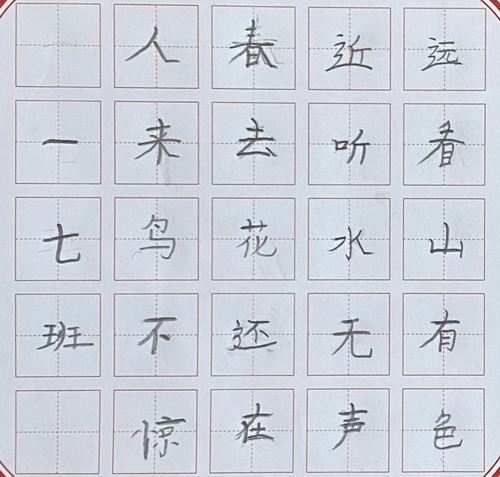 远看山有色
近听水无声
春去花还在
人来鸟不惊
一七班